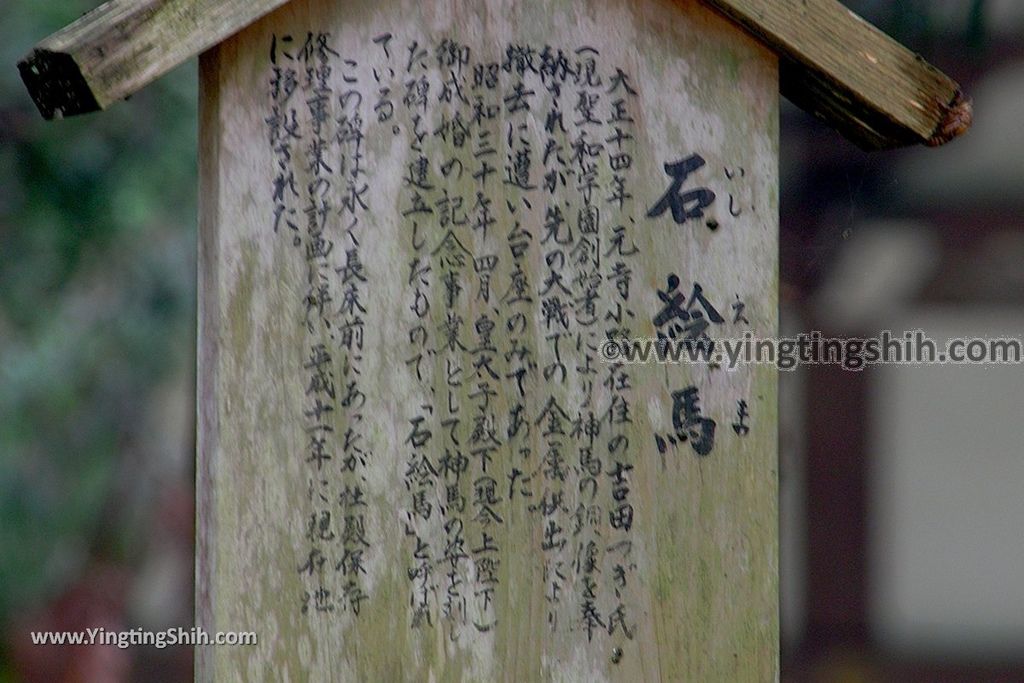 石絵馬
いし え ま
大正十四年、元寺小路在住の吉田つぎ氏
(現聖和学園創始者)により神馬の銅像を奉
納されたが、先の大戦での金属供出により
撤去に遭い台座のみであった。
昭和三十九年四月、皇太子殿下(現今上陛下)
御成婚の記念事業として神馬の姿を刻し
た碑を建立したもので、「石絵馬」と呼ばれ
ている。
この碑は永く長床前にあったが、社殿保存
修理事業の計画に伴い、平成十一年に現存地
に移設された。
©www.yingtingshih.com
www.YingtingShih.com